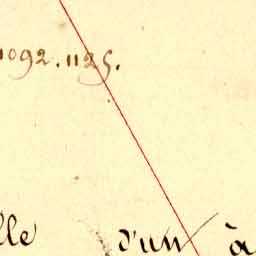 1092.1125.
lle d'un à